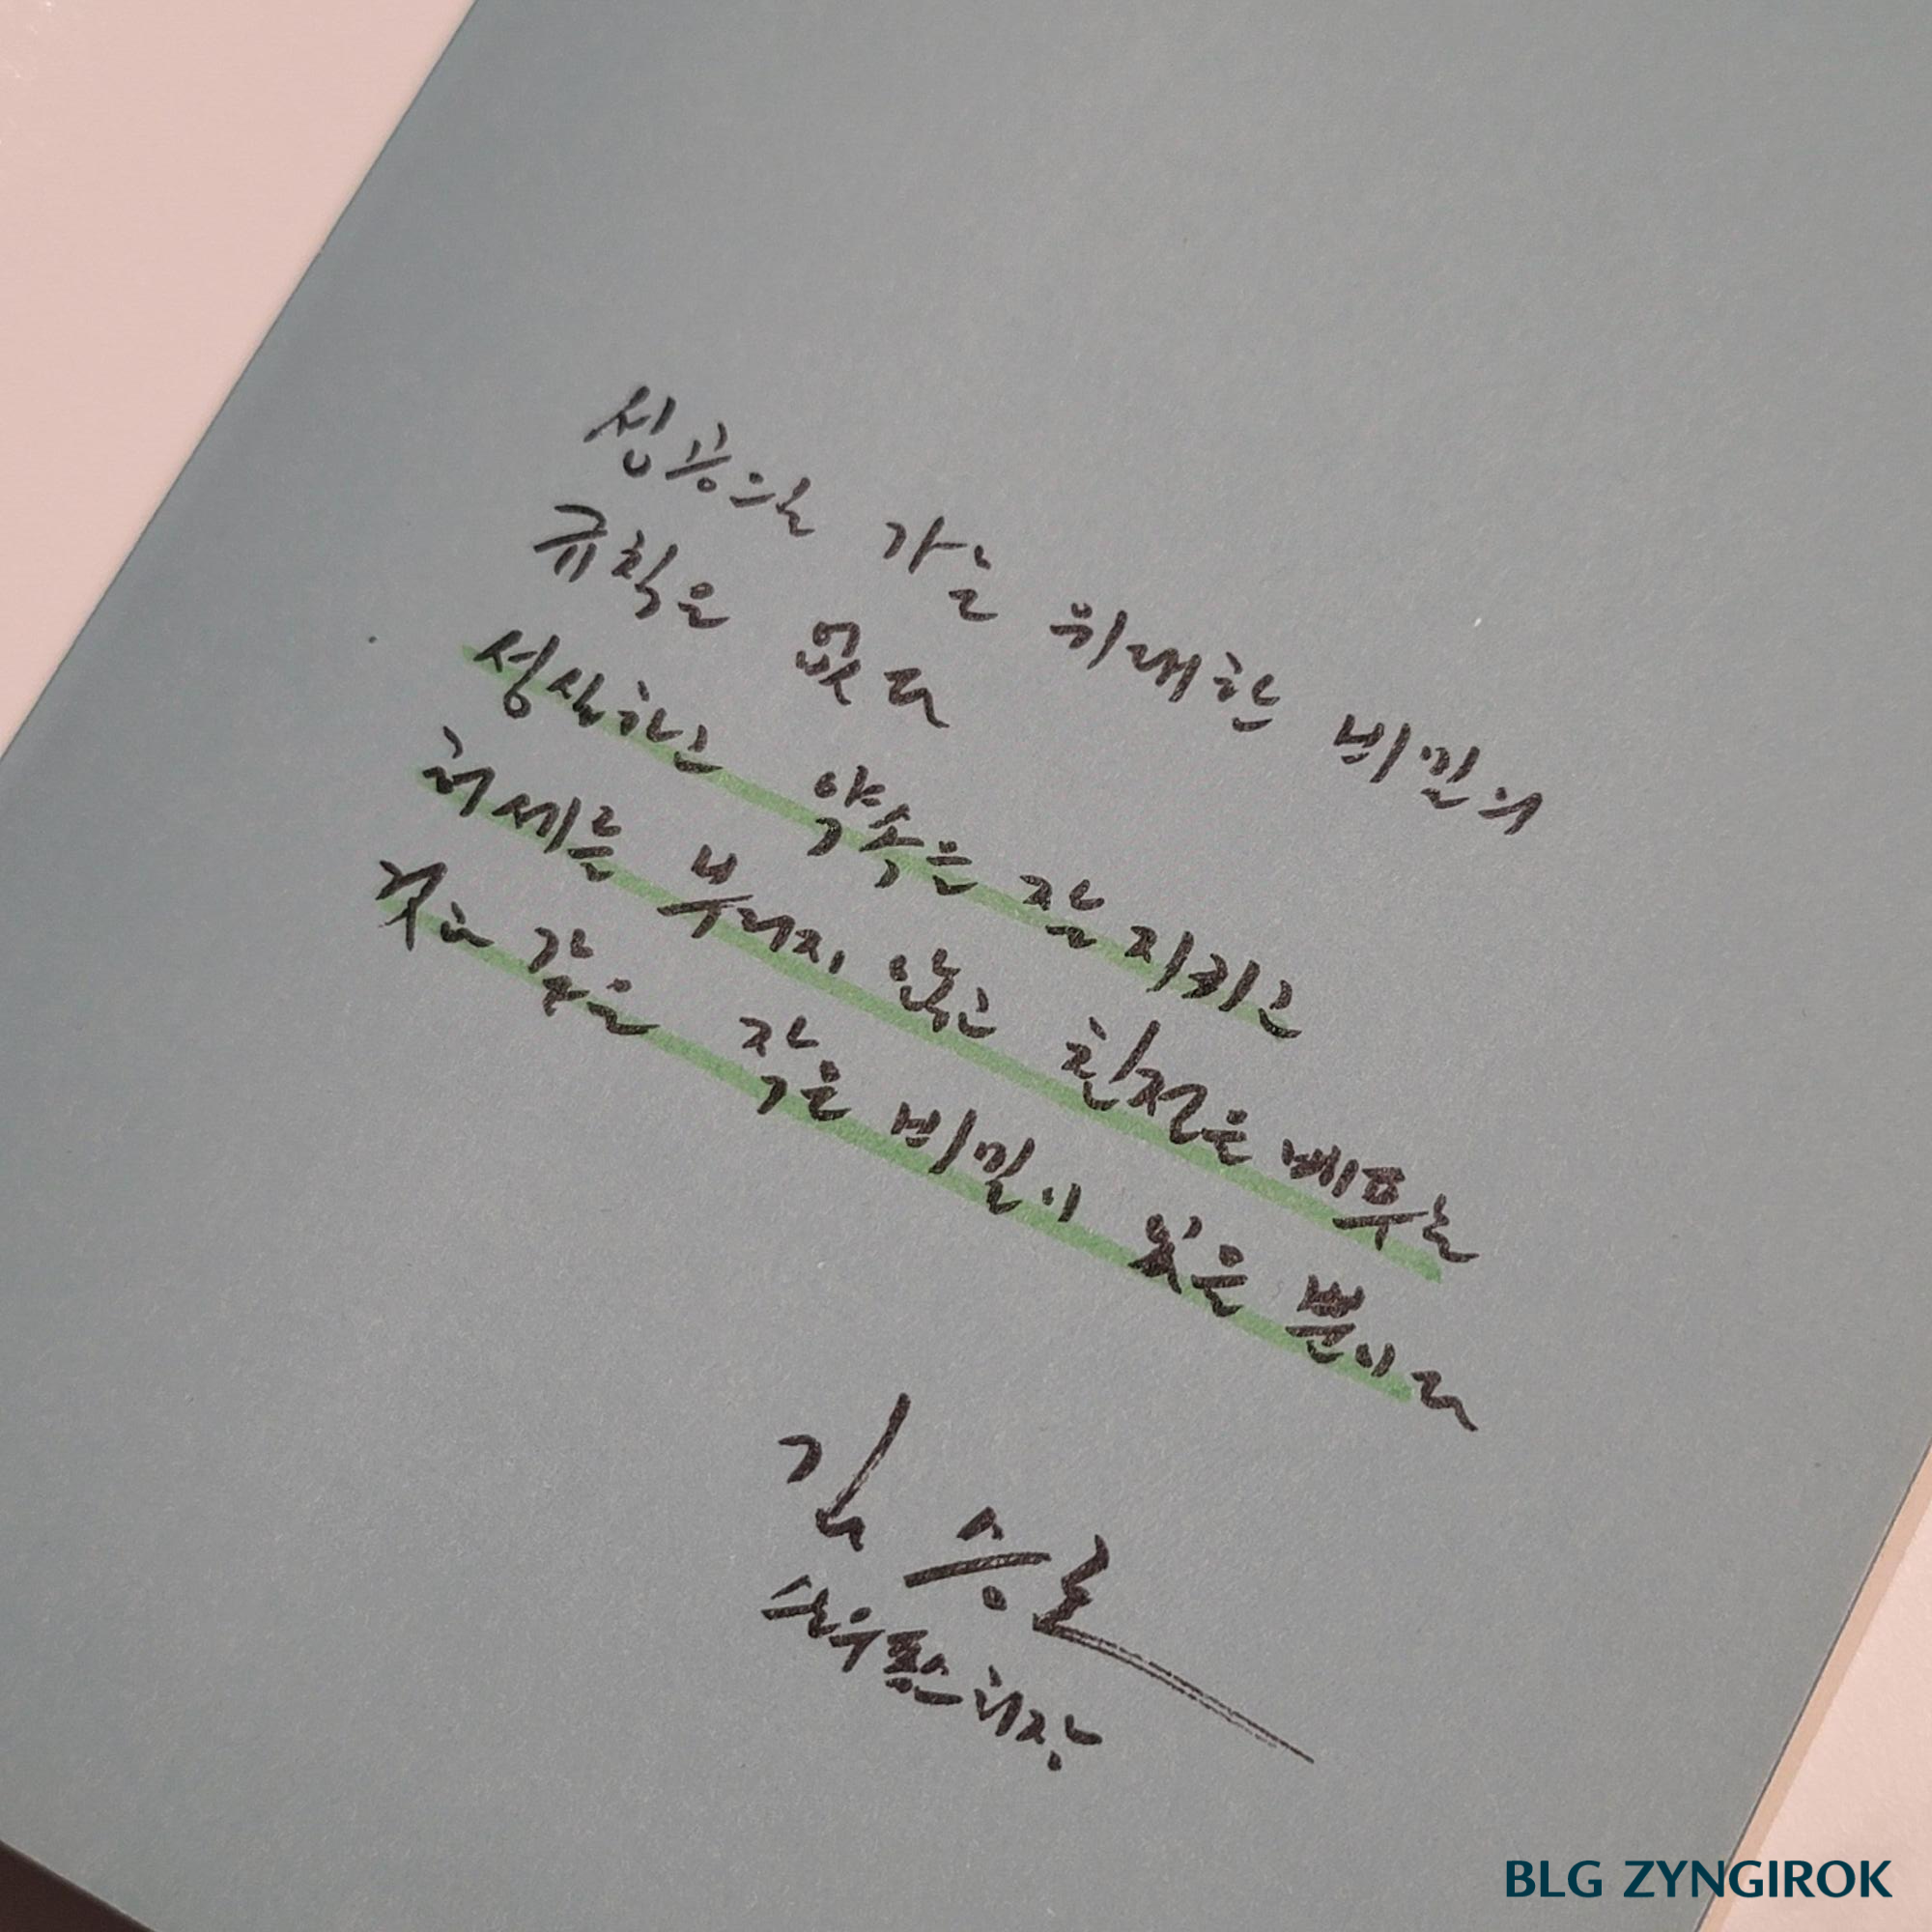 성공으로 가는 위대한 비밀의
규칙은 없다
성실하고 약속을 잘 지키고
허세를 부리지 않고 친절을 베푸는
것과 같은 작은 비밀이 있을 뿐이다
김승호
스노우폭스 회장
BLG ZYNGIROK